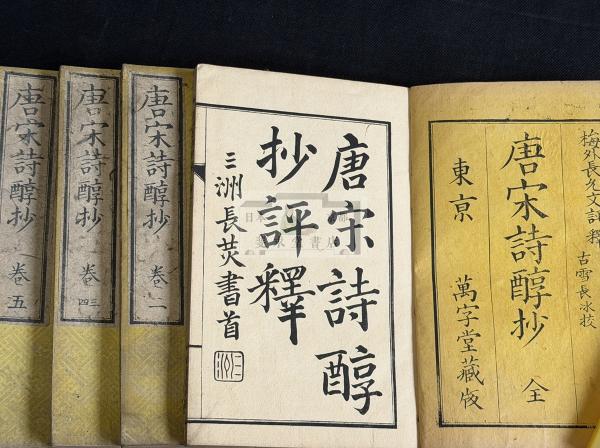 唐宋詩醇抄 卷五
唐宋詩醇抄 卷三四
唐宋詩醇抄 卷二
唐宋詩醇
抄評釋
三洲長炗書首
三洲
梅外長允文評釋 古雪長冰挍
唐宋詩醇抄 全
東京 萬字堂藏版